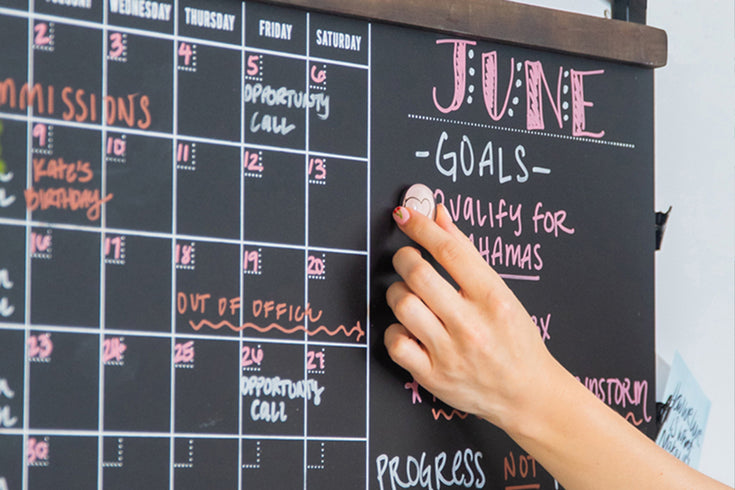 WEDNESDAY THURSDAY FRIDAY SATURDAY
JUNE
2 3 4 5 6
MMISSIONS
OPPORTUNITY
CALL
9 10 11 12 13
KATE'S
BIRTHDAY
16 17 18 19 20
OUT OF OFFICE
23 24 25 26 27
OPPORTUNITY
CALL
30
-GOALS-
QUALIFY FOR
BAHAMAS
PROGRESS
NOT